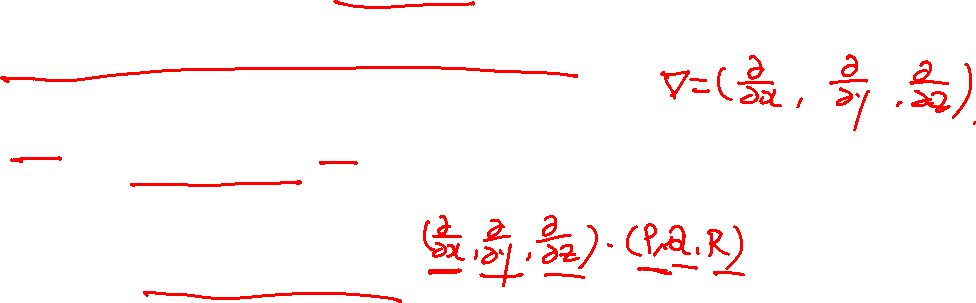 ∇=(∂/∂x, ∂/∂y, ∂/∂z).
(∂/∂x, ∂/∂y, ∂/∂z)·(P,Q,R)